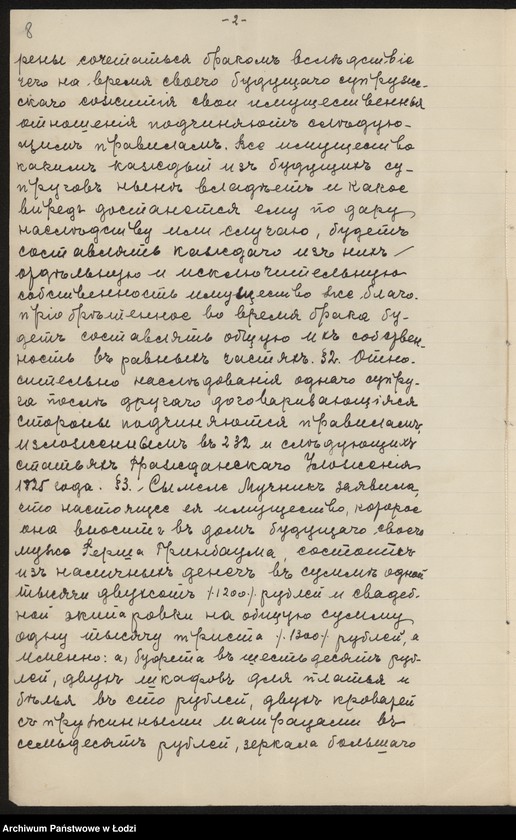 8
-2-
рены сочетаться бракомъ вслѣдствіе
чего на время своего будущаго супруже-
скаго сожитія свои имущественныя
отношенія подчиняютъ слѣдую-
щимъ правиламъ. Все имущество
какимъ каждый изъ будущихъ су-
пруговъ нынѣ владѣетъ и какое
впредь достанется ему по дару
наслѣдству или случаю, будетъ
составлять каждаго изъ нихъ /
отдѣльную и исключительную
собственность имущество же благо-
пріобрѣтенное во время брака бу-
детъ составлять общую ихъ собствен-
ность въ равныхъ частяхъ. §2. Отно-
сительно наслѣдованія одного супру-
га послѣ другаго договаривающіяся
стороны подчиняются правиламъ
изложеннымъ въ 232 и слѣдующихъ
статьяхъ Гражданскаго Уложенія
1825 года. §3. Мучникъ заявила,
что настоящее ея имущество, которое
она вноситъ въ домъ будущаго своего
мужа Герша Гринбаума, состоитъ
изъ наличныхъ денегъ въ суммѣ одной
тысячи двухсотъ /1200/ рублей и свадеб-
ной экипировки на общую сумму
одну тысячу триста /1300/ рублей, а
именно: а) буфета въ шестьдесятъ руб-
лей, двухъ шкафовъ для платья и
бѣлья въ сто рублей, двухъ кроватей
съ пружинными матрацами въ
семьдесятъ рублей, зеркала большаго
Archiwum Państwowe w Łodzi